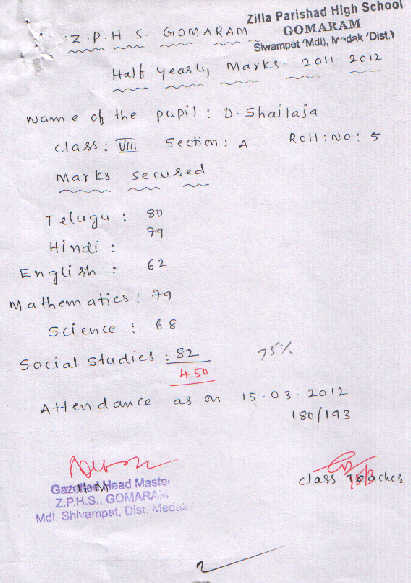 Zilla Parishad High School
Z.P.H.S. GOMARAM
GOMARAM
Half Yearly Marks 2011 2012
Name of the pupil : D. Shailaja
class : VIII Section : A Roll : No : 5
Marks secused
Telugu : 80
Hindi : 79
English : 62
Mathematics : 79
Science : 68
Social Studies : 82
75%
450
Attendance as on 15.03.2012
180/193
Head Master
Z.P.H.S., GOMARAM,
Mdl. Shivampet, Dist. Medak
class
2